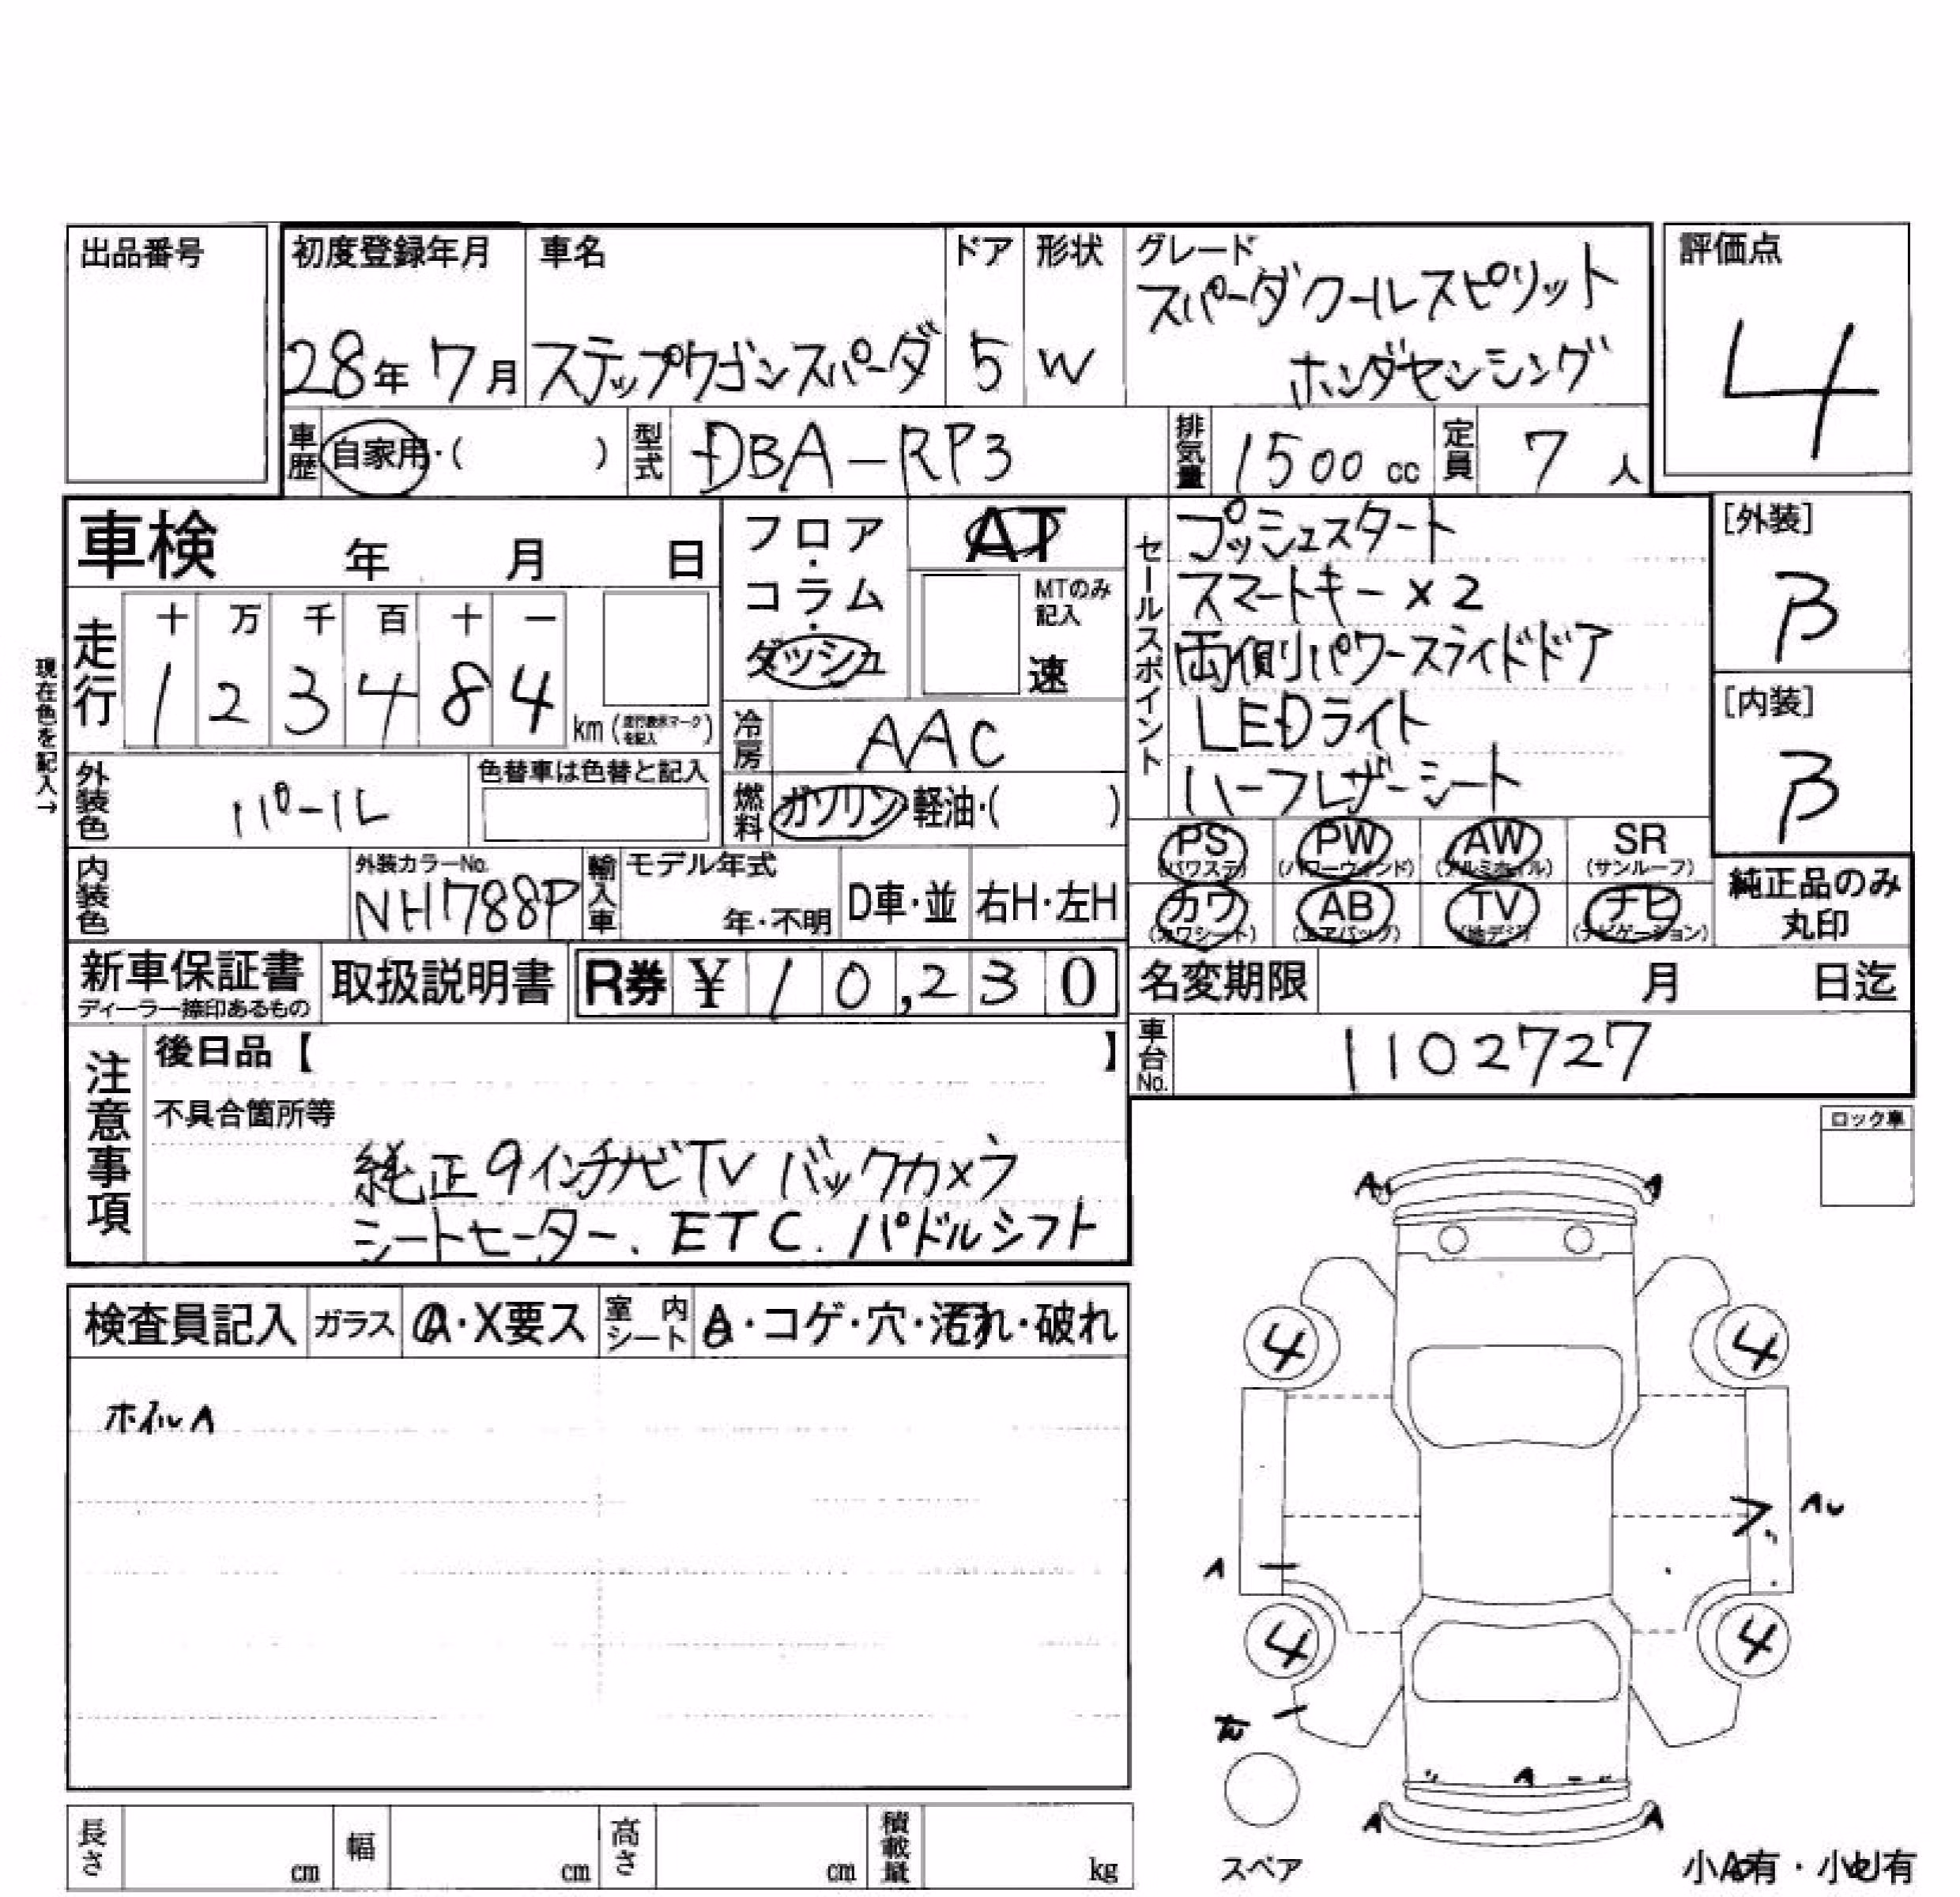 出品番号
初度登録年月
28年 7月
車名
ステップワゴンスパーダ
ドア
5
形状
W
グレード
スパーダクールスピリット
ホンダセンシング
評価点
4
車歴
自家用・( )
型式
DBA-RP3
排気量
1500 cc
定員
7 人
車検 年 月 日
フロア・コラム・ダッシュ
AT
MTのみ記入
速
セールスポイント
プッシュスタート
スマートキー×2
両側パワースライドドア
LEDライト
ハーフレザーシート
[外装]
B
[内装]
B
現在色を記入→
走行
十 万 千 百 十 一
1 2 3 4 8 4
km (走行表示マークを記入)
冷房
AAC
外装色
パール
色替車は色替と記入
燃料
ガソリン・軽油・( )
PS (パワステ)
PW (パワーウインド)
AW (アルミホイル)
SR (サンルーフ)
カワ (カワシート)
AB (エアバック)
TV (地デジ)
ナビ (ナビゲーション)
純正品のみ
丸印
内装色
外装カラーNo.
NH788P
輸入車
モデル年式
年・不明
D車・並
右H・左H
新車保証書
ディーラー捺印あるもの
取扱説明書
R券 ¥ 10,230
名変期限 月 日迄
車台No.
1102727
注意事項
後日品【 】
不具合箇所等
純正9インチナビTV バックカメラ
シートヒーター、ETC. パドルシフト
ロック車
検査員記入
ガラス
A・X要ス
室内シート
A・コゲ・穴・汚れ・破れ
ホイルA
A A
4 4
A
4 4
A
A A
スペア
小A有・小U有
長さ cm
幅 cm
高さ cm
積載量 kg